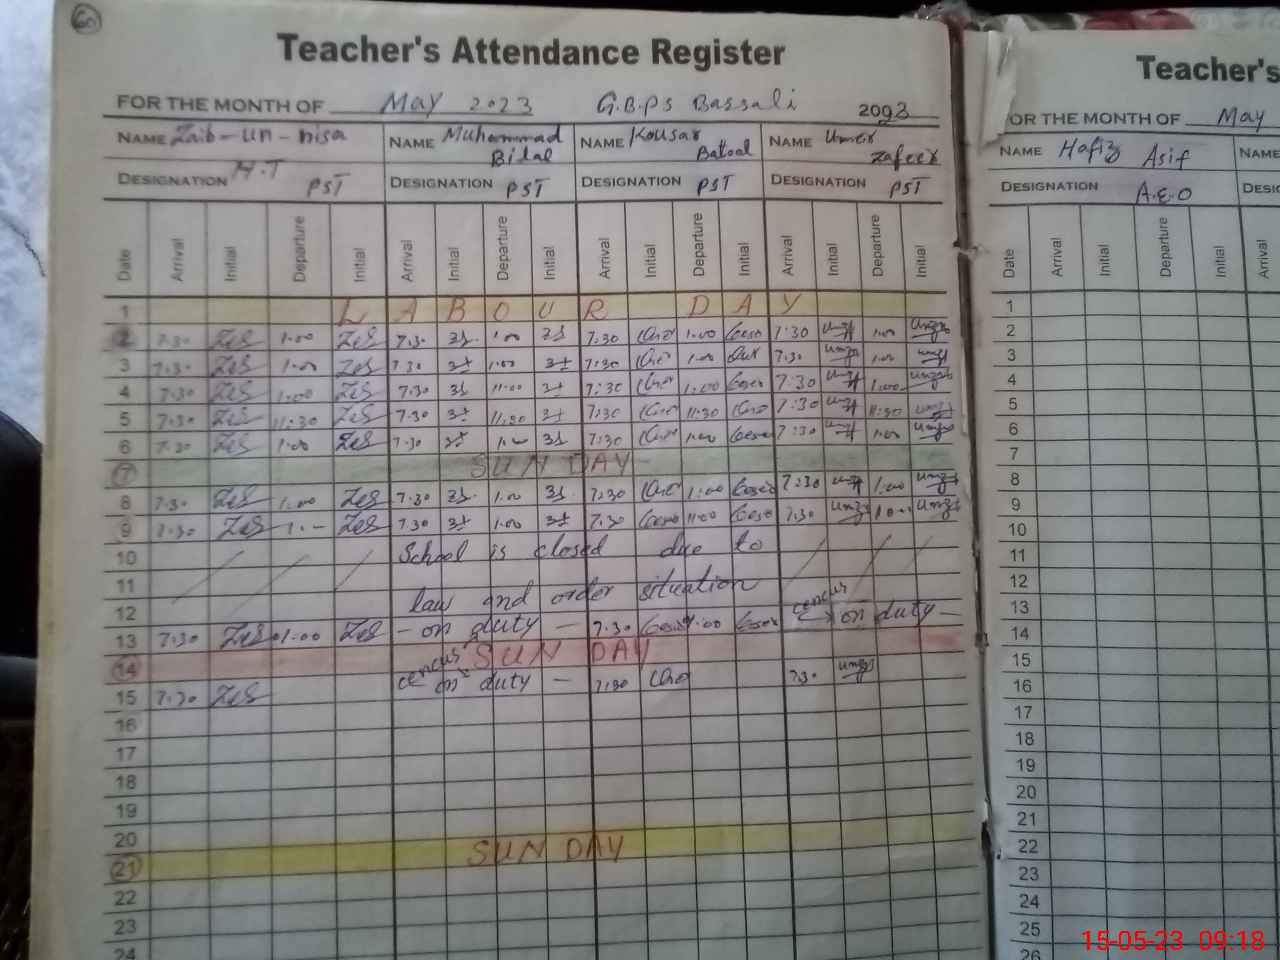 60
Teacher's Attendance Register
FOR THE MONTH OF May 2023 G.B.P.S Bassali 2003
NAME Zaib-un-nisa NAME Muhammad Bilal NAME Kousar Batool NAME Umer Zafeer
DESIGNATION H.T PST DESIGNATION PST DESIGNATION PST DESIGNATION PST
Date Arrival Initial Departure Initial Arrival Initial Departure Initial Arrival Initial Departure Initial Arrival Initial Departure Initial
1 LABOUR DAY
2 7.30 ZeS 1.00 ZeS 7.30 1.00 7.30 1.00 7:30 1.00
3 7.30 ZeS 1.00 ZeS 7.30 1.00 7:30 1.00 7.30 1.00
4 7.30 ZeS 1.00 ZeS 7.30 11.00 7:30 1.00 7:30 1.00
5 7.30 ZeS 11:30 ZeS 7.30 11.30 7:30 11:30 7:30 11:30
6 7.30 ZeS 1.00 ZeS 7.30 1.00 7:30 1.00 7:30 1.00
7 SUNDAY
8 7.30 ZeS 1.00 ZeS 7.30 1.00 7:30 1:00 7:30 1.00
9 7.30 ZeS 1.- ZeS 7.30 1.00 7.30 1.00 7.30 1.00
10 School is closed due to
11
12 law and order situation
13 7:30 ZeS 1.00 ZeS - on duty - 7.30 1.00 cencus on duty -
14 SUNDAY
15 7.30 ZeS cencus on duty - 7.30 7.30
16
17
18
19
20
21 SUNDAY
22
23
24
Teacher's
FOR THE MONTH OF May
NAME Hafiz Asif NAME
DESIGNATION A.E.O
Date Arrival Initial Departure Initial Arrival
1
2
3
4
5
6
7
8
9
10
11
12
13
14
15
16
17
18
19
20
21
22
23
24
25
26
15-05-23 09:18